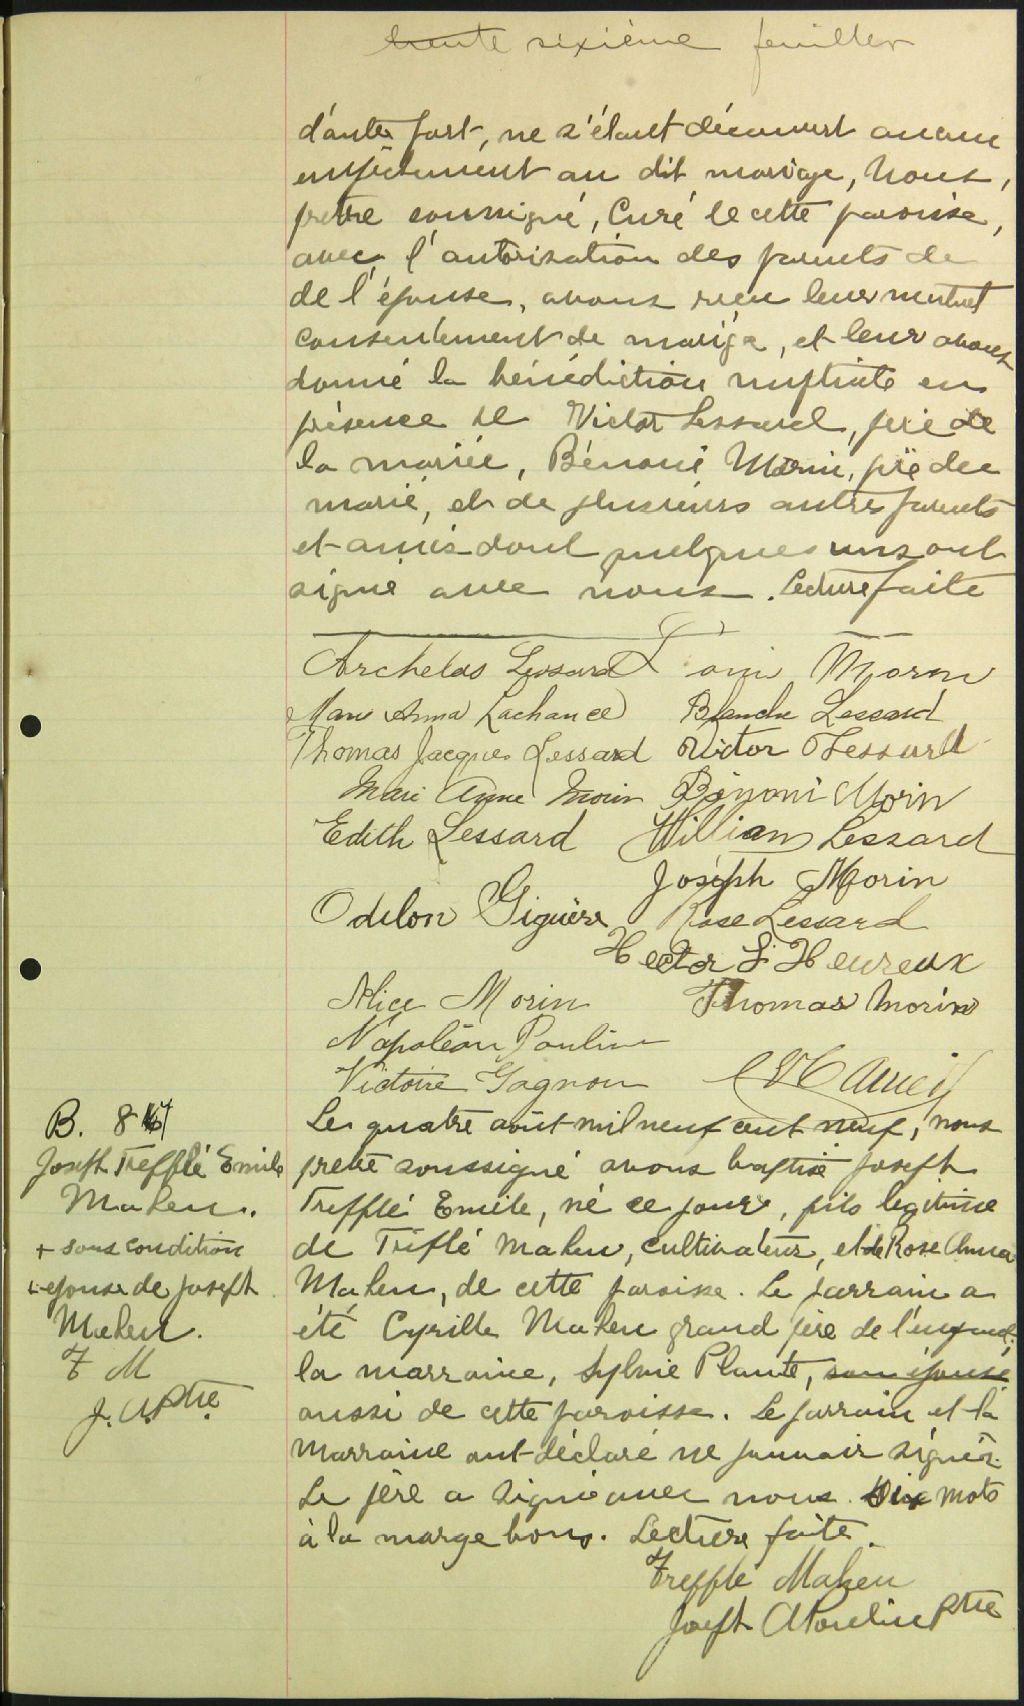 trente sixième feuillet
d'autre part, ne s'étant découvert aucun
empêchement au dit mariage, Nous,
prêtre soussigné, Curé de cette paroisse,
avec l'autorisation des parents de
de l'épouse, avons reçu leur mutuel
consentement de mariage, et leur avons
donné la bénédiction nuptiale en
présence de Victor Lessard, père de
la mariée, Bénoni Morin, père du
marié, et de plusieurs autres parents
et amis dont quelques uns ont
signé avec nous. Lecture faite
Archelas Lessard Morin
Marie Anna Lachance Blanche Lessard
Thomas Jacques Lessard Victor Lessard
Marie Anne Morin Bénoni Morin
Edith Lessard William Lessard
Joséph Morin
Odilon Giguère Rose Lessard
Hector L'Heureux
Alice Morin Thomas Morin
Napoléon Poulin
Victoire Gagnon
B. 8
Joseph Trefflé Emile
Maheu.
+ sous condition
+ epouse de Joseph
Maheu.
T M
J. A. Ptre
Le quatre août mil neuf cent neuf, nous
prêtre soussigné avons baptisé Joseph
Trefflé Emile, né ce jour, fils légitime
de Trifflé Maheu, cultivateur, et de Rose Anna
Maheu, de cette paroisse. Le parrain a
été Cyrille Maheu grand père de l'enfant,
la marraine, Sylvie Plante, son épouse
aussi de cette paroisse. Le parrain et la
marraine ont déclaré ne pouvoir signer.
Le père a signé avec nous. Six mots
à la marge bons. Lecture faite.
Trefflé Maheu
Joseph A Poulin Ptre